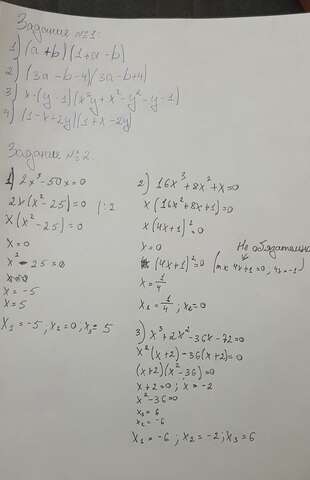 Задание №1:
1) (a+b)(1+a-b)
2) (3a-b-4)(3a-b+4)
3) x·(y-1)(x²y+x²-y²-y-1)
4) (1-x-2y)(1+x-2y)
Задание №2.
1) 2x³-50x=0
2x(x²-25)=0 |:2
x(x²-25)=0
x=0
x²-25=0
x=-5
x=5
x₁=-5, x₂=0, x₃=5
2) 16x³+8x²+x=0
x(16x²+8x+1)=0
x(4x+1)²=0
x=0
Не обязательно
(4x+1)²=0 (4x+1=0, 4x=-1)
x=1/4
x₁=1/4; x₂=0
3) x³+2x²-36x-72=0
x²(x+2)-36(x+2)=0
(x+2)(x²-36)=0
x+2=0; x=-2
x²-36=0
x₁=6
x₂=-6
x₁=-6; x₂=-2; x₃=6